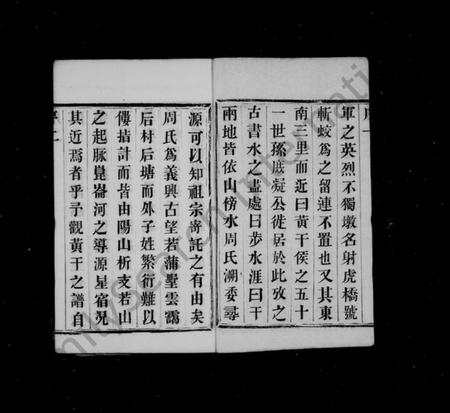 軍之英烈不獨墩名射虎橋號
斬蛟爲之留連不置也又其東
南三里而近曰黃干侯之五十
一世孫底凝公徙居於此攷之
古書水之盡處曰步水涯曰干
兩地皆依山傍水周氏溯委尋
源可以知祖宗寄託之有由矣
周氏爲義興古望若蒲墅雲靄
后村后塘而外子姓繁衍難以
僂指計而皆由陽山析支若山
之起脉崑崙河之導源星宿況
其近焉者乎予觀黃干之譜自
序二